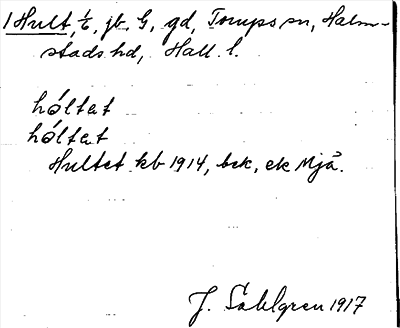 1 Hult, 1/2, jb, G, gd, Torups sn, Halm-
stads hd, Hall. l.
hóltat
hóltat
Hultet kb 1914, bek, ek Mjå.
J. Sahlgren 1917